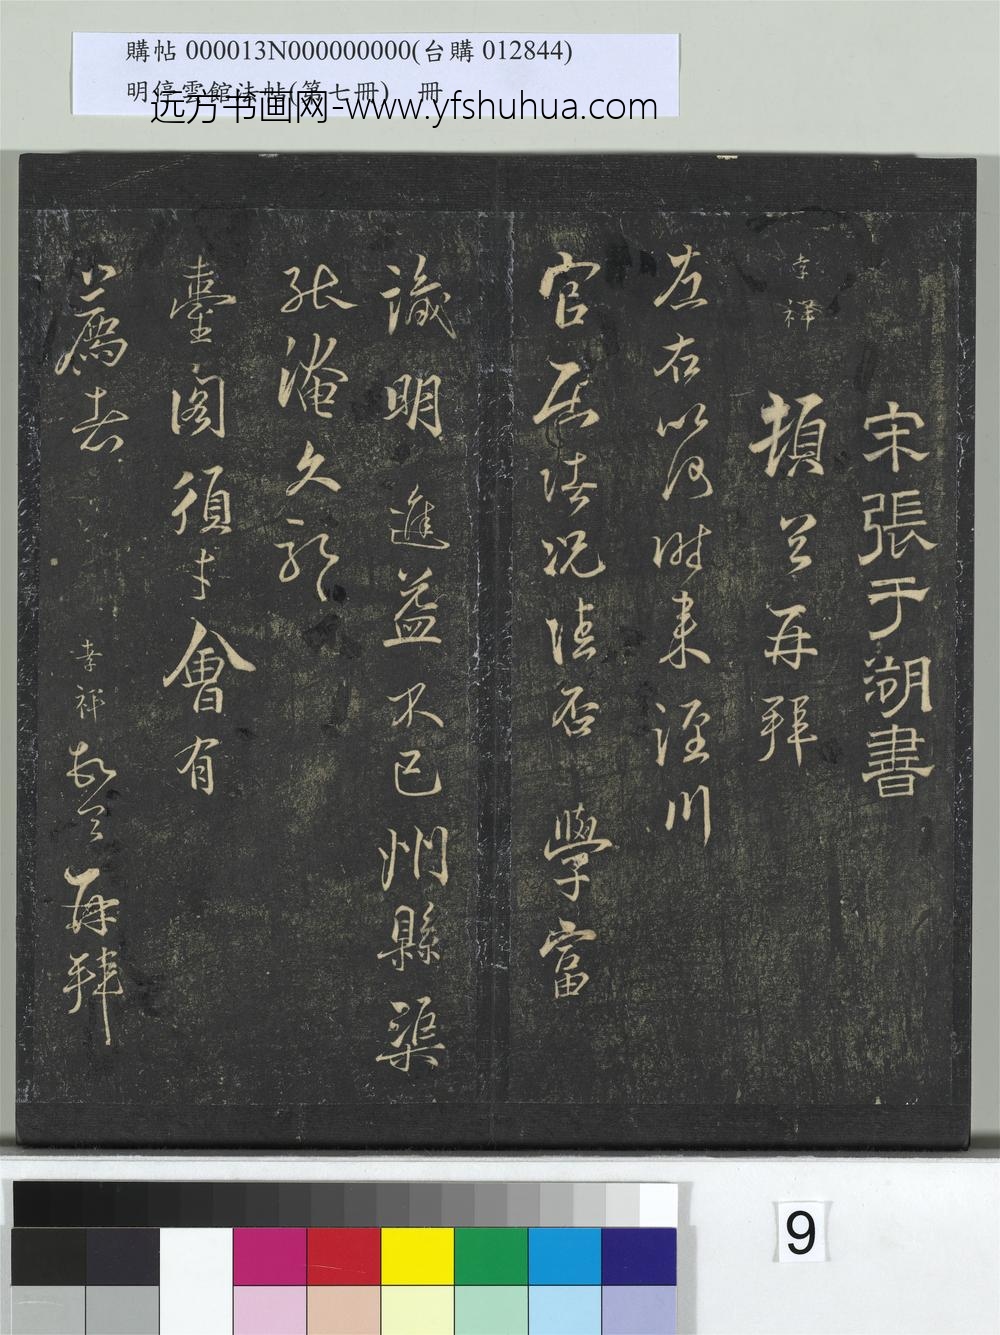 購帖 000013N000000000(台購 012844)
明停雲館法帖(第七冊) 冊
远方书画网-www.yfshuhua.com
宋張于湖書
孝祥 頓首再拜
左右以何時來涇川
官居情況佳否 學富
識明 進益不已 州縣渠
能淹久耶
臺閣須才會有
薦者 孝祥 敬空 再拜
9